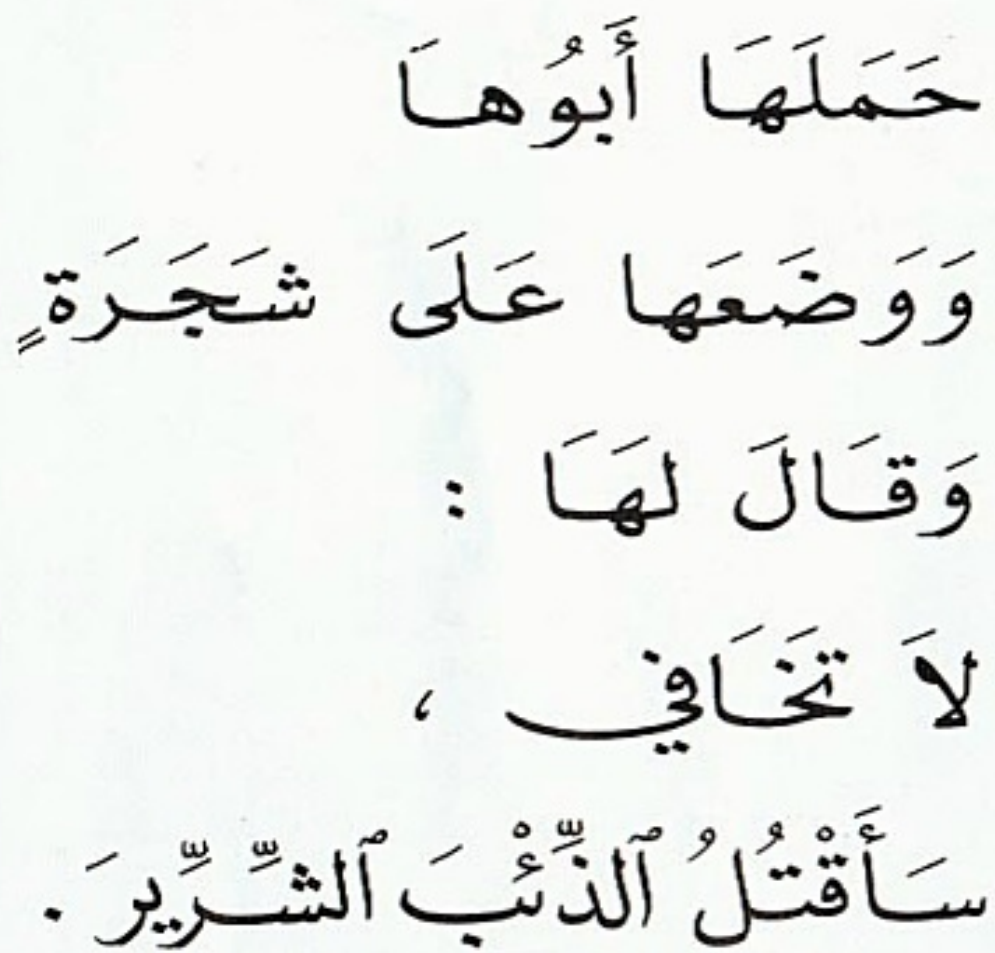 حَمَلَهَا أَبُوهَا
وَوَضَعَها عَلَى شَجَرَةٍ
وَقَالَ لَهَا :
لاَ تَخَافِي ،
سَأَقْتُلُ ٱلذِّئْبَ ٱلشِّرِّيرَ .